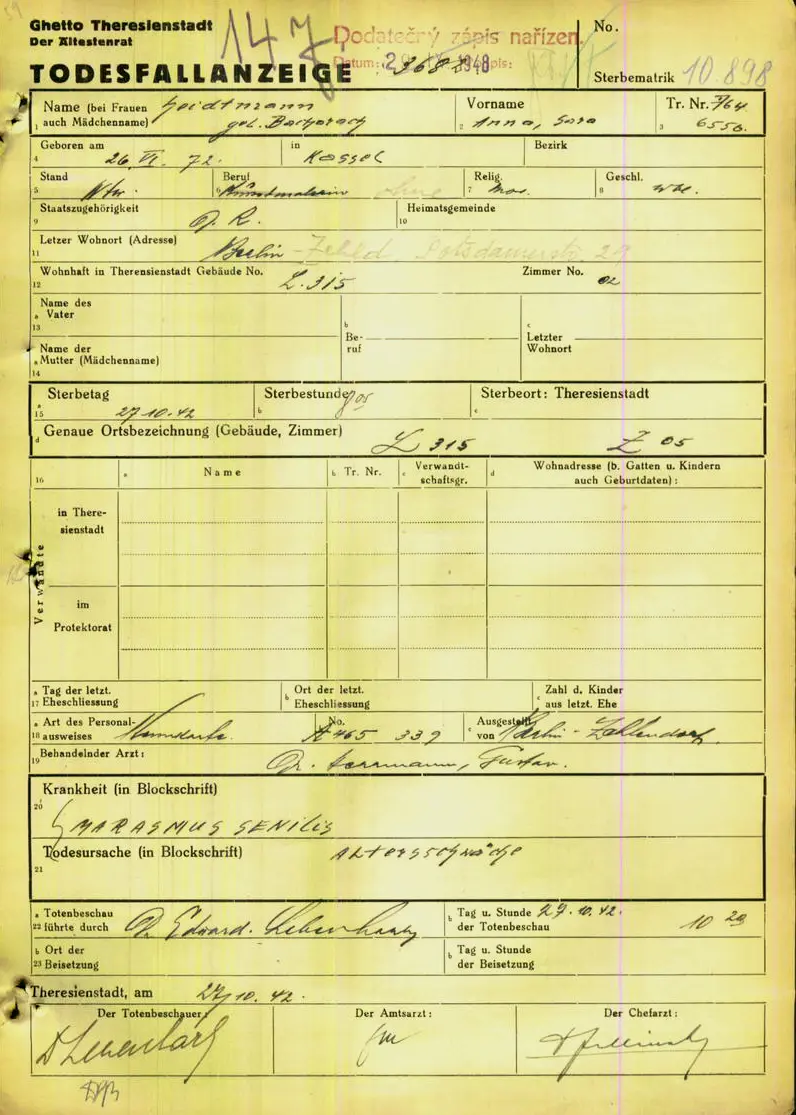 Ghetto Theresienstadt
Der Ältestenrat
TODESFALLANZEIGE
147
Dodatečný zápis nařízen
Datum: 1948
No.
Sterbematrik 10.898
Name (bei Frauen
1 auch Mädchenname)
geb.
Vorname
2 Anna, Sara
Tr. Nr. I/64
3 6550.
Geboren am
4 26. VI. 72.
in
Kassel
Bezirk
Stand
5 Ktw.
Beruf
6 Kunstmalerin
Relig.
7 mos.
Geschl.
8 wbl.
Staatszugehörigkeit
9 D. R.
Heimatsgemeinde
10
Letzer Wohnort (Adresse)
11 Berlin - Zehld Potsdamerstr. 29
Wohnhaft in Theresienstadt Gebäude No.
12 L. 315
Zimmer No.
Name des
a Vater
13
Name der
a Mutter (Mädchenname)
14
b
Be-
ruf
c
Letzter
Wohnort
Sterbetag
a
15 27.10.42
Sterbestunde
b
Sterbeort: Theresienstadt
c
d Genaue Ortsbezeichnung (Gebäude, Zimmer) L 315 Z 05
16
a Name
b Tr. Nr.
c Verwandt-
schaftsgr.
d Wohnadresse (b. Gatten u. Kindern
auch Geburtdaten) :
Verwandte
in There-
sienstadt
im
Protektorat
a Tag der letzt.
17 Eheschliessung
b Ort der letzt.
Eheschliessung
c Zahl d. Kinder
aus letzt. Ehe
a Art des Personal-
18 ausweises Kennkarte.
b No.
A 465 339
c Ausgestellt
von Berlin - Zehlendorf.
Behandelnder Arzt :
19 Dr. Herrmann, Gustav.
Krankheit (in Blockschrift)
20
MARASMUS SENILIS
Todesursache (in Blockschrift) Altersschwäche
21
a Totenbeschau
22 führte durch Dr. Eduard
b Tag u. Stunde 27.10.42.
der Totenbeschau
b Ort der
23 Beisetzung
b Tag u. Stunde
der Beisetzung
Theresienstadt, am 27/10.42.
Der Totenbeschauer:
Der Amtsarzt :
Der Chefarzt :